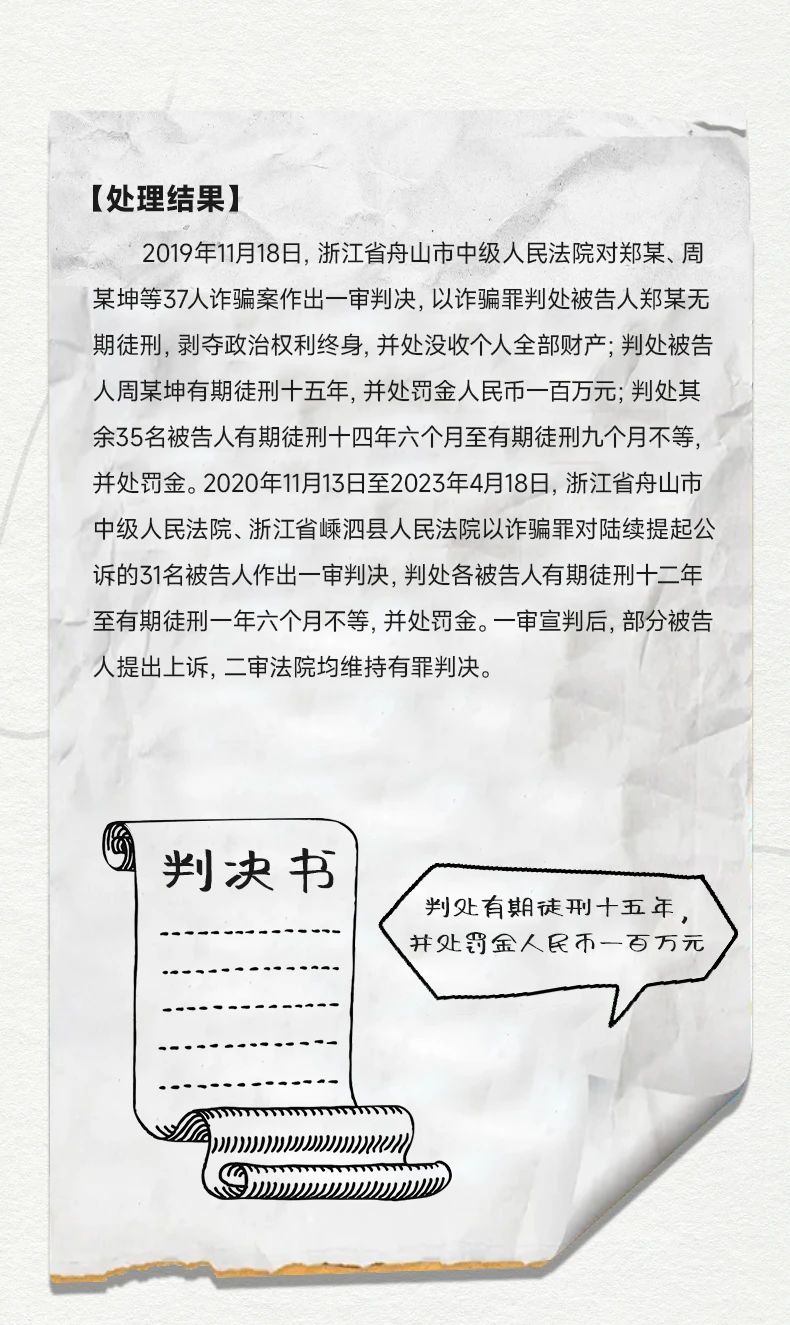 【处理结果】
2019年11月18日, 浙江省舟山市中级人民法院对郑某、周
某坤等37人诈骗案作出一审判决, 以诈骗罪判处被告人郑某无
期徒刑, 剥夺政治权利终身, 并处没收个人全部财产; 判处被告
人周某坤有期徒刑十五年, 并处罚金人民币一百万元; 判处其
余35名被告人有期徒刑十四年六个月至有期徒刑九个月不等,
并处罚金。2020年11月13日至2023年4月18日, 浙江省舟山市
中级人民法院、浙江省嵊泗县人民法院以诈骗罪对陆续提起公
诉的31名被告人作出一审判决, 判处各被告人有期徒刑十二年
至有期徒刑一年六个月不等, 并处罚金。一审宣判后, 部分被告
人提出上诉, 二审法院均维持有罪判决。
判决书
判处有期徒刑十五年,
并处罚金人民币一百万元